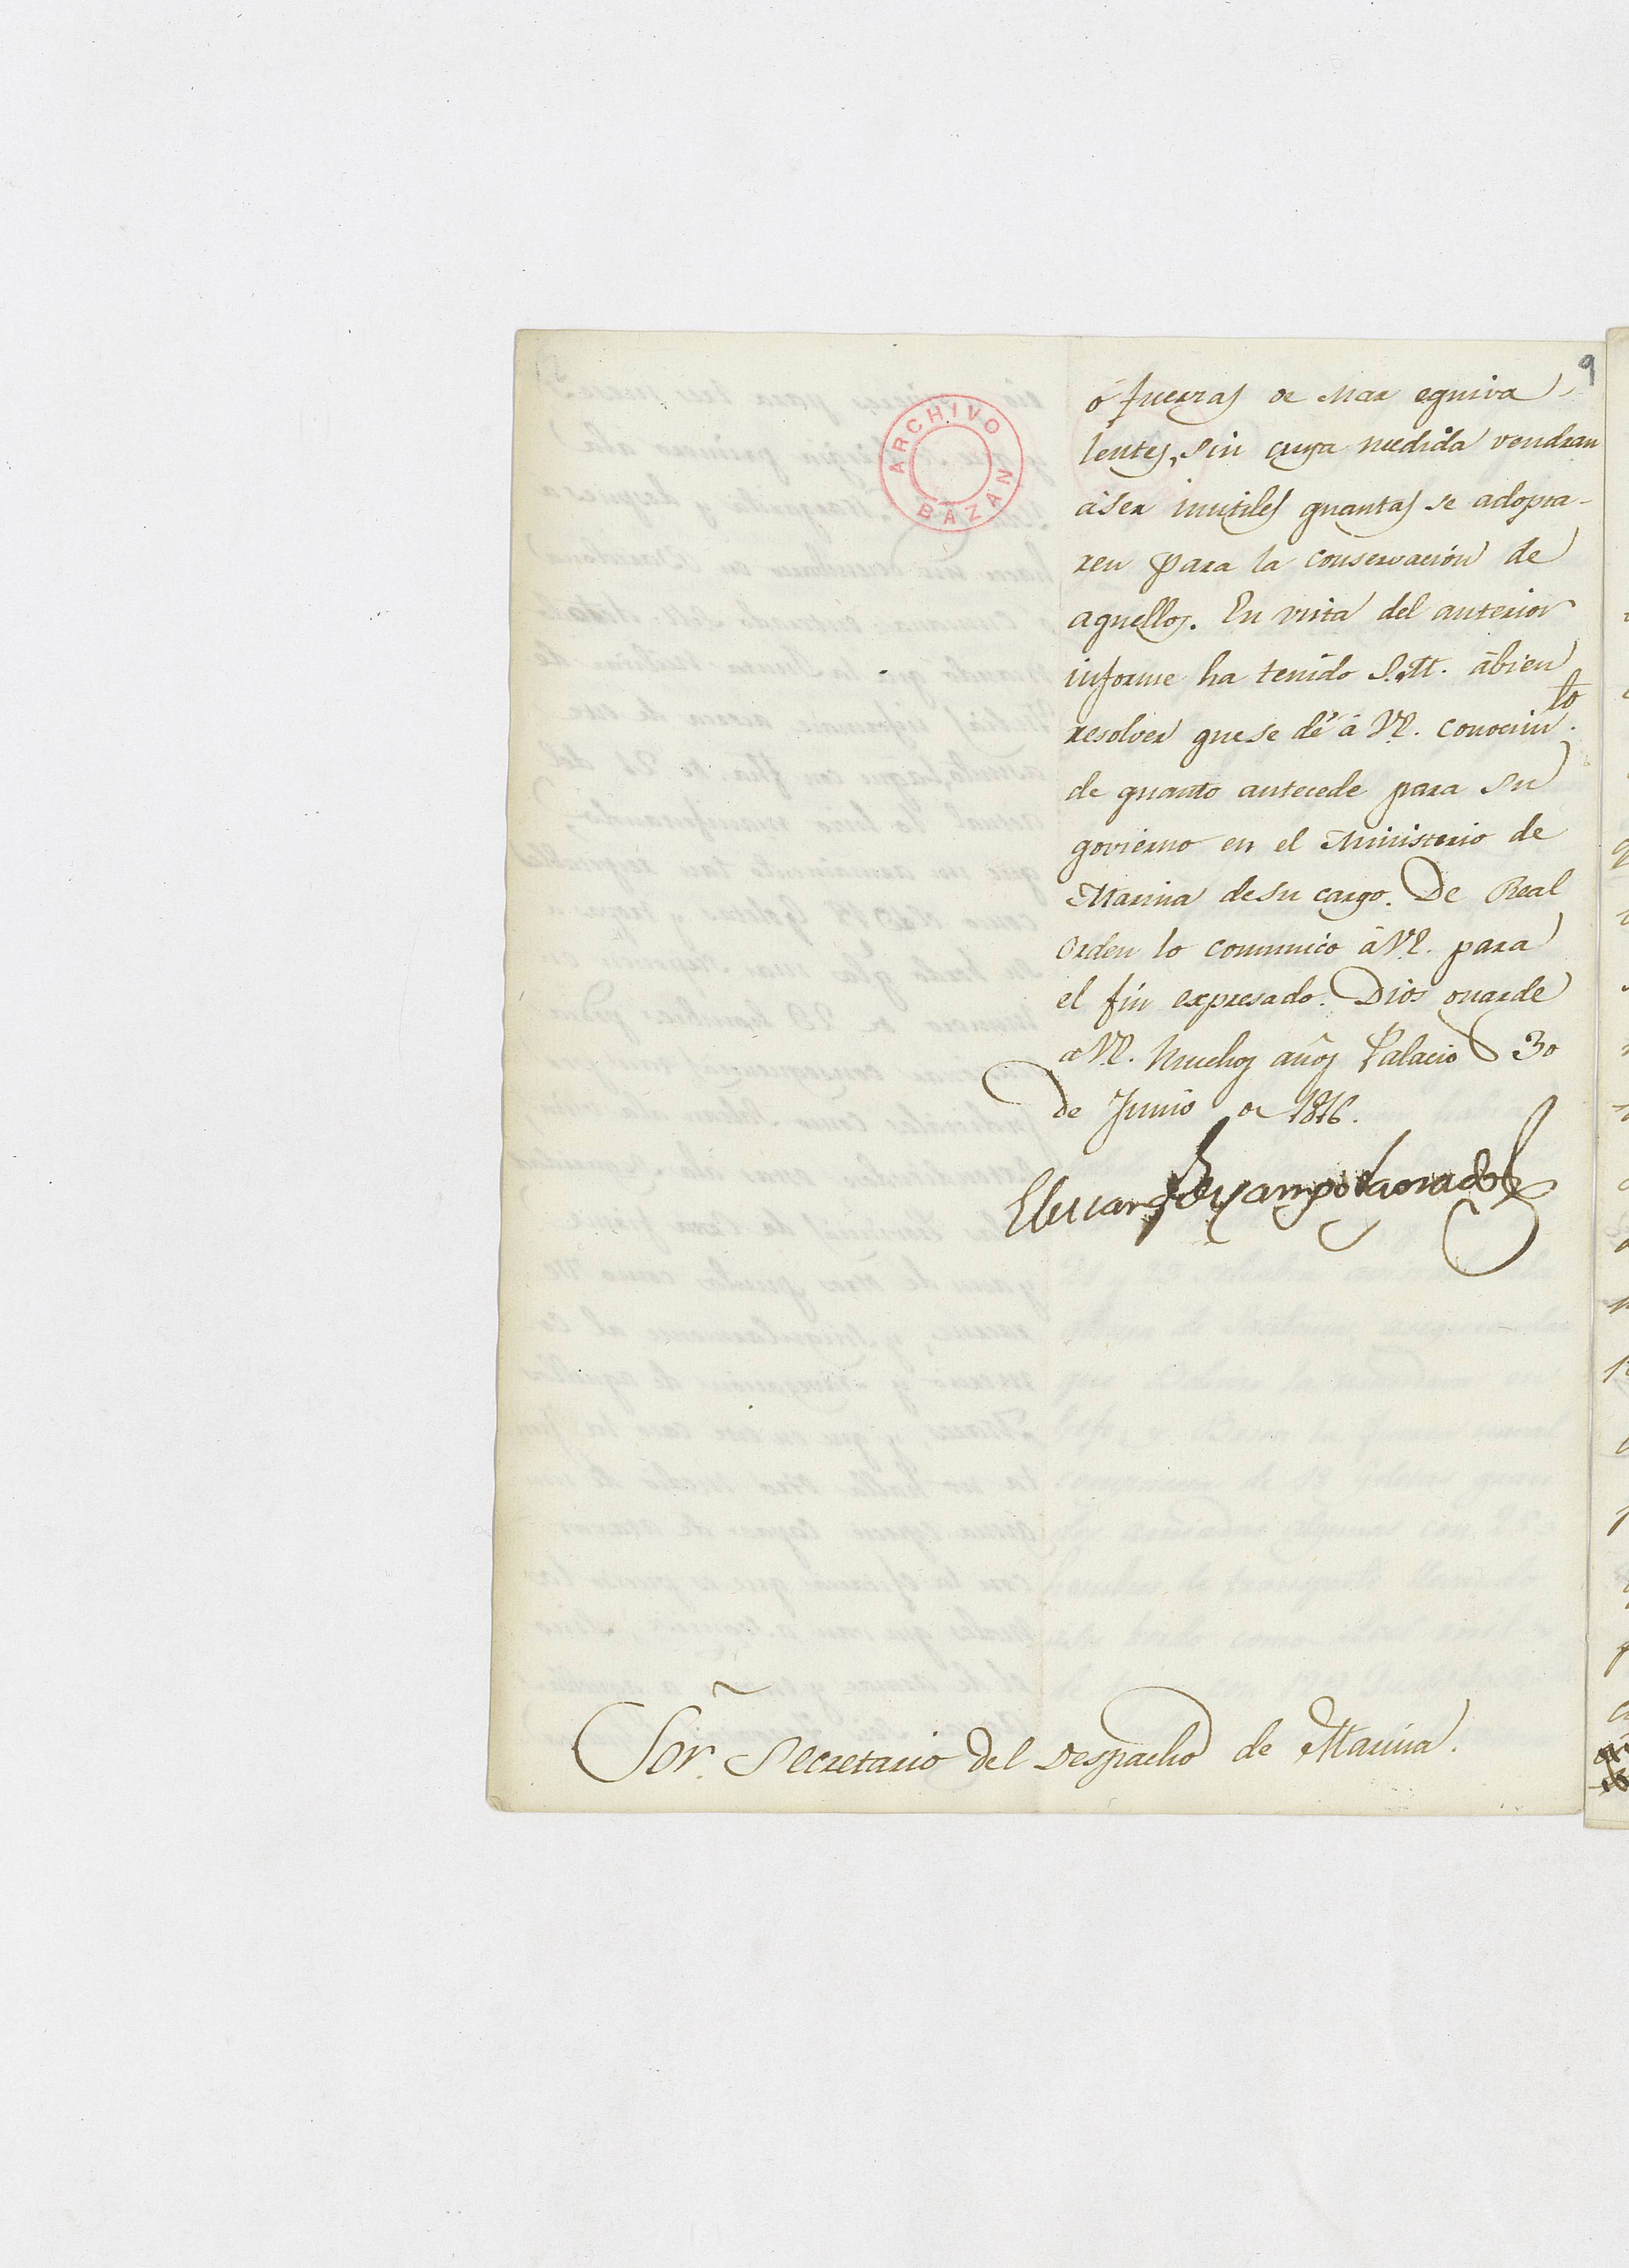 9
ARCHIVO BAZAN
ó fuerzas de Mar equiva
lentes, sin cuya medida vendran
à ser inutiles quantas se adopta-
ren para la conservación de
aquellos. En vista del anterior
informe ha tenido S.M. à bien
resolver que se dé à V.E. conocim.to
de quanto antecede para su
govierno en el Ministerio de
Marina de su cargo. De Real
orden lo comunico à V.E. para
el fin expresado. Dios guarde
a V.E. muchos años Palacio 30
de Junio de 1816.
El Marq.s de Campo Sagrado
Sor. Secretario del Despacho de Marina.